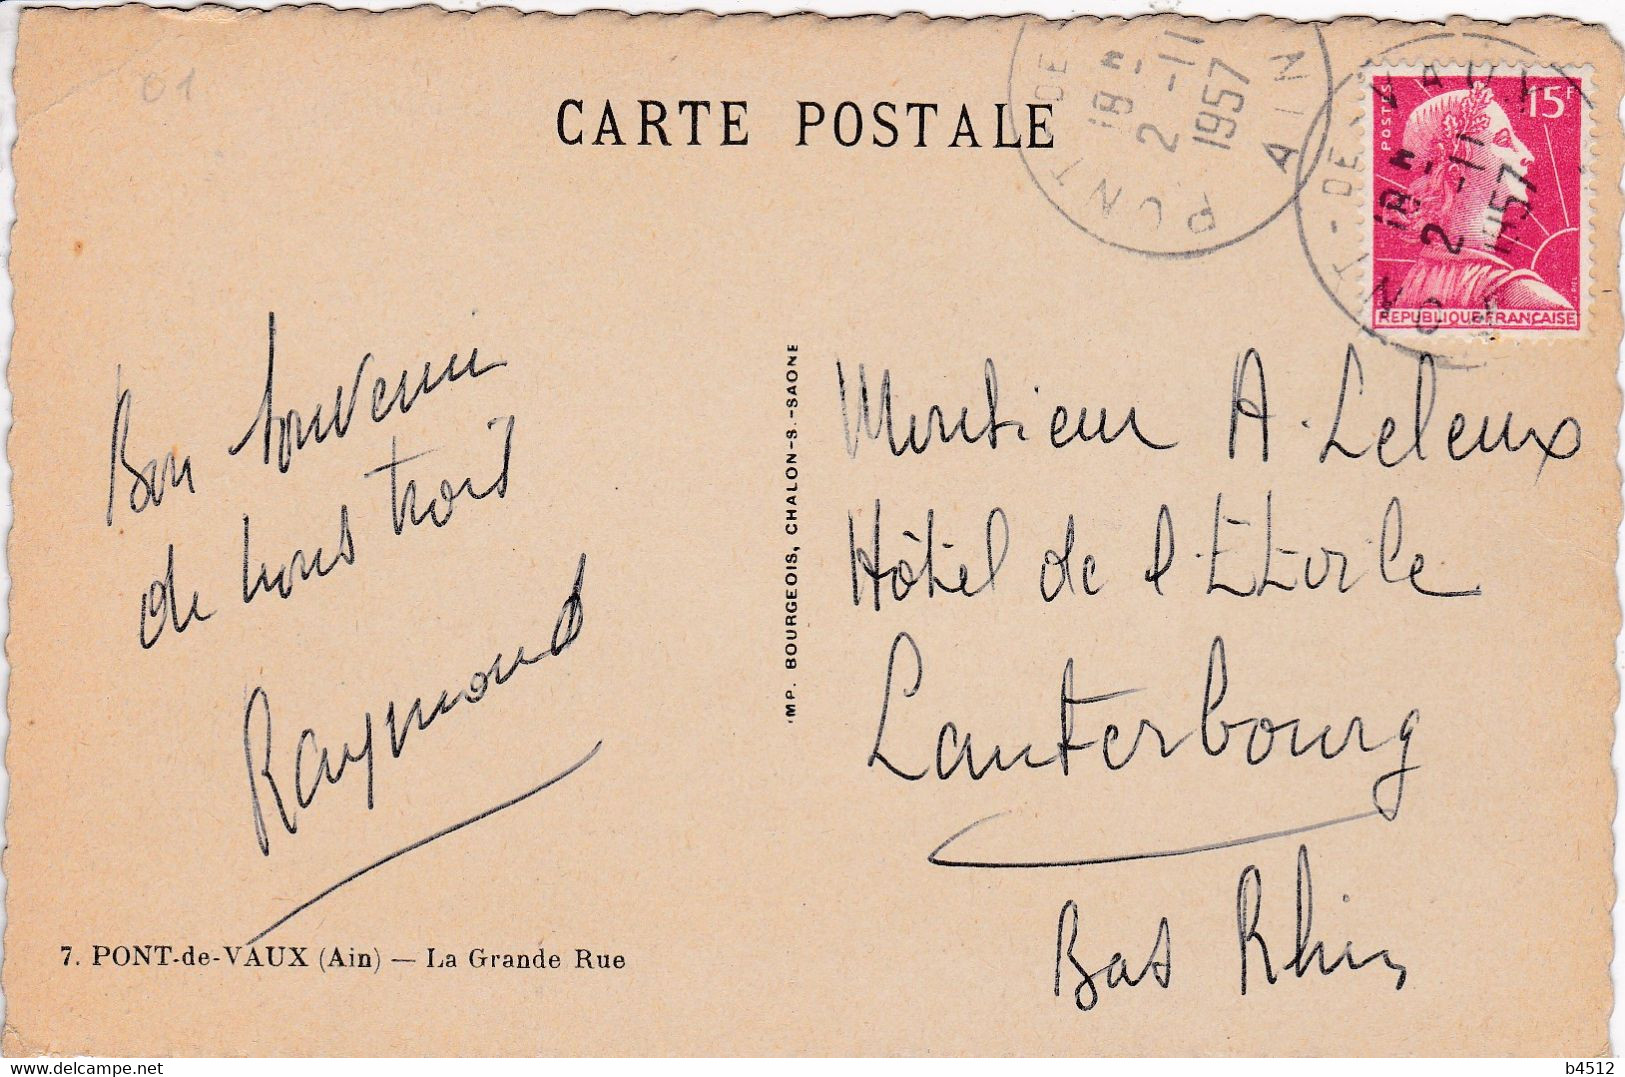 01
CARTE POSTALE
PONT-DE-VAUX
18 H
2-11
1957
AIN
POSTES
15F
REPUBLIQUE FRANÇAISE
Bon souvenir
de nous trois
Raymond
7. PONT-de-VAUX (Ain) — La Grande Rue
IMP. BOURGEOIS, CHALON-S.-SAONE
Monsieur A. Leleux
Hôtel de l'Etoile
Lauterbourg
Bas Rhin
b4512